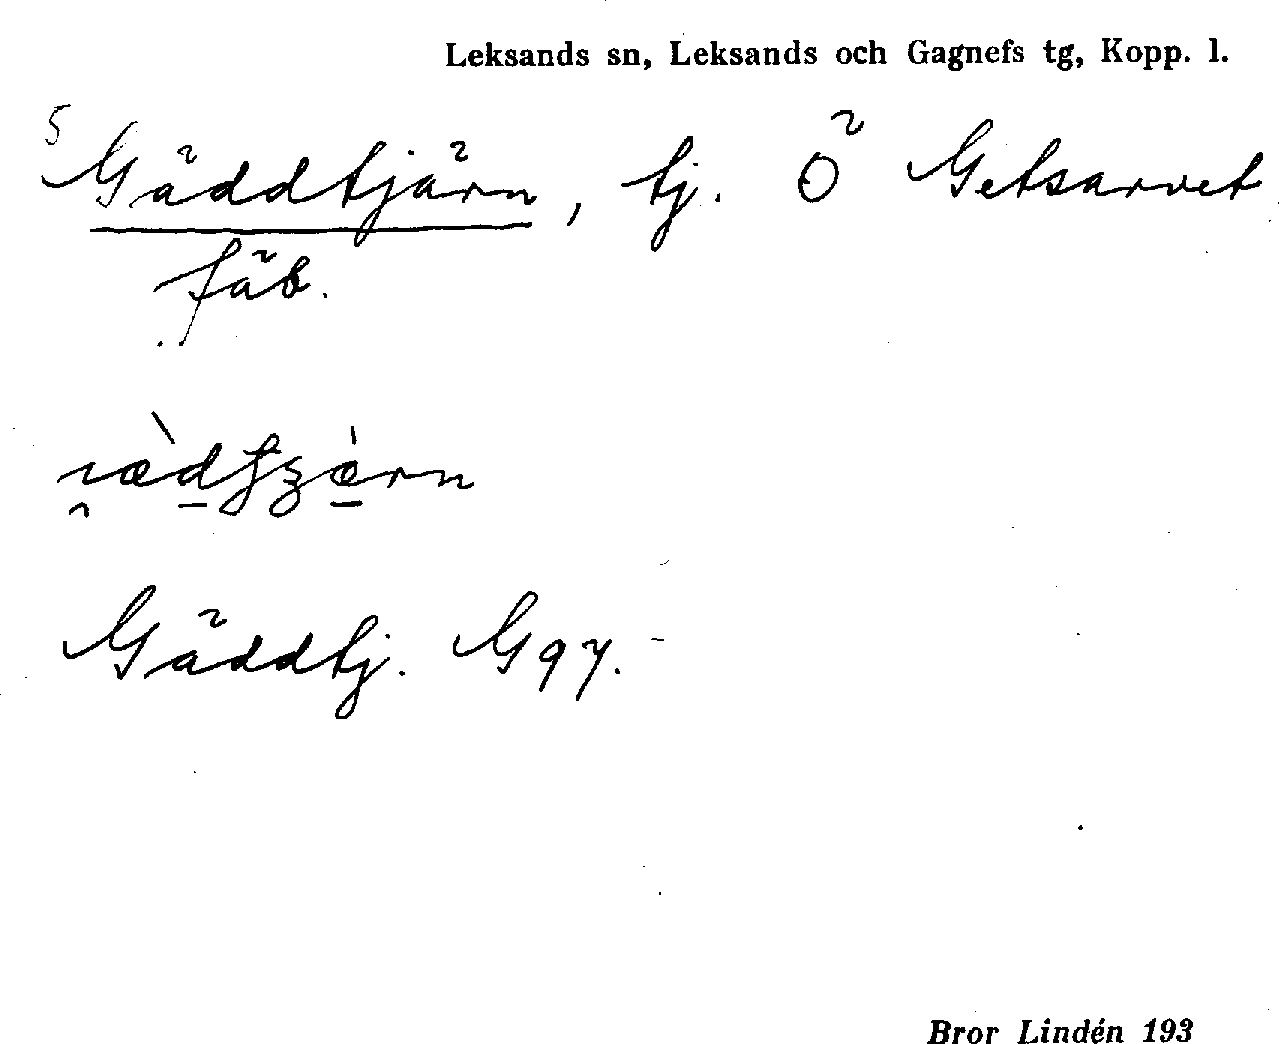 Leksands sn, Leksands och Gagnefs tg, Kopp. l.
5 Gäddtjärn, tj. Ö Getsarvet
fäb.
Gäddtj. G 97.
Bror Lindén 193